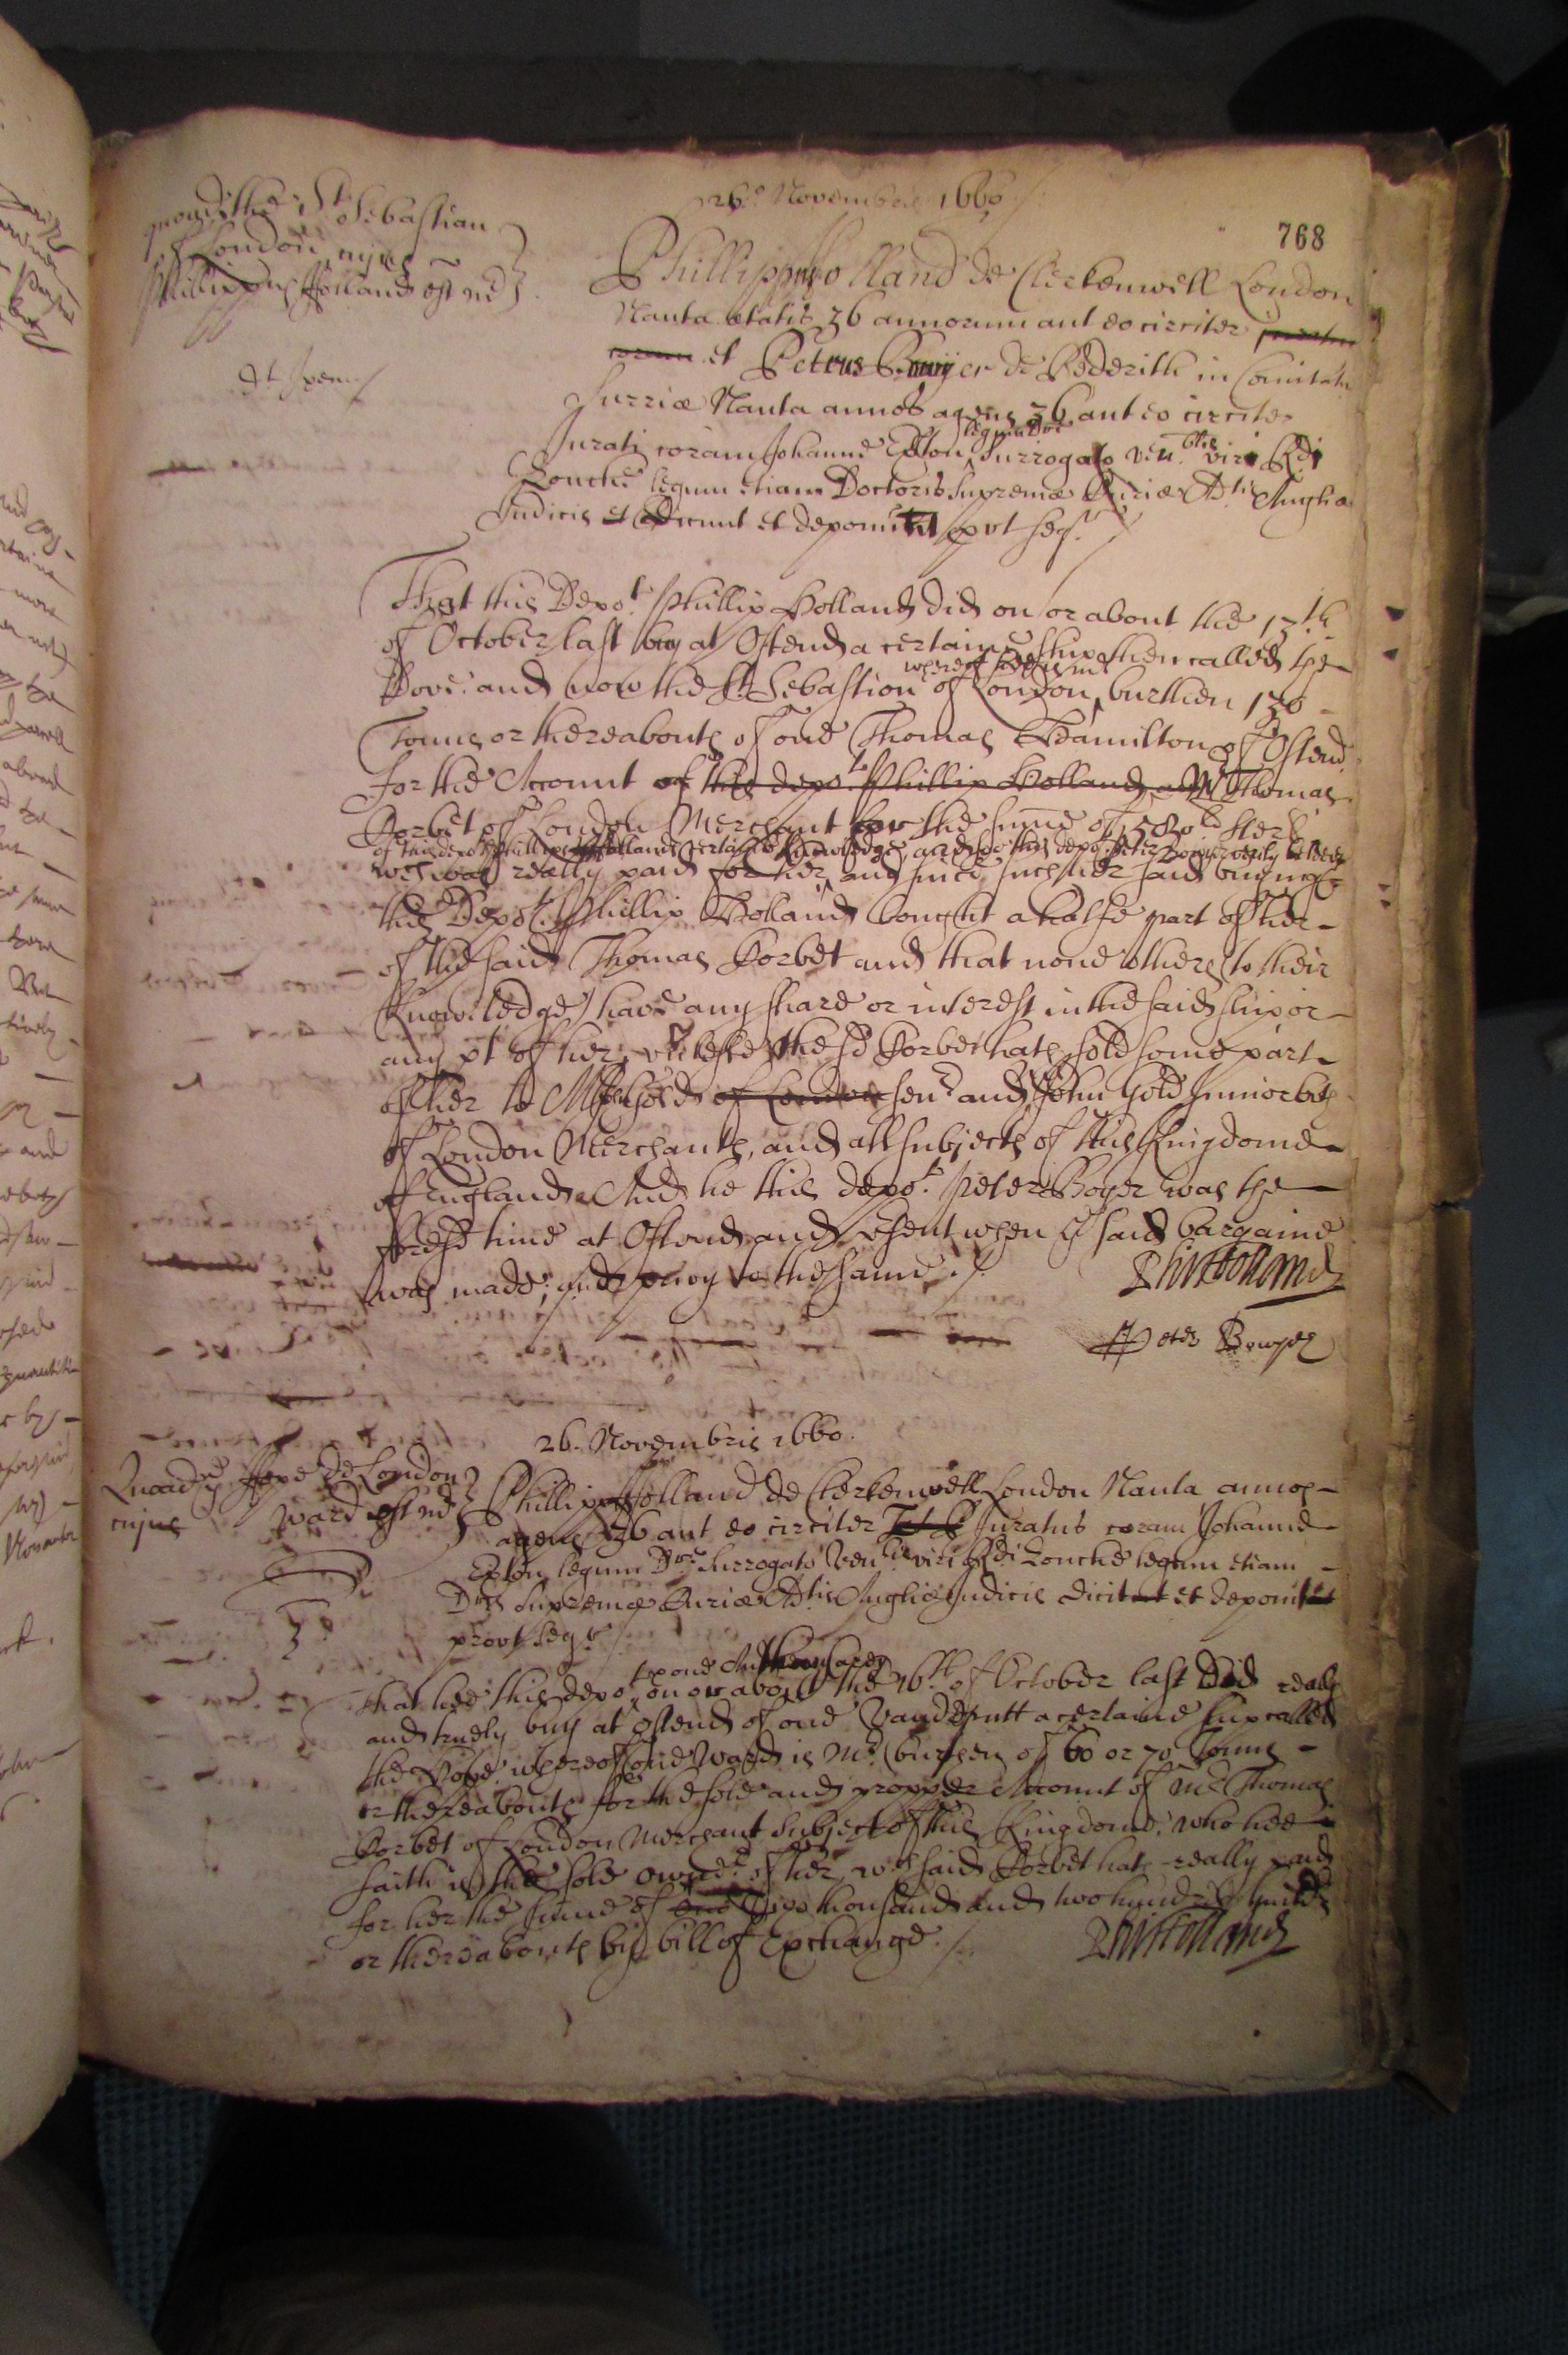 26.o Novembris 1660
768
quoad the St Sebastian
of London cujus
Phillippus Holland est mr
Phillippus Holland de Clerkenwell London
Nauta ætatis 36 annorum aut eo circiter juratus
coram et Petrus Bowyer de Rederith in Comitatu
Surriæ Nauta annos agens 36 aut eo circiter
Jurati coram Johanne Exton legum Dre Surrogato ven.blis viri Rdi
Zouche legum etiam Doctoris Supremæ Curiæ Adtis Angliæ
Judicis et dicunt et deponunt prout seqr
That this Depot. Phillip Holland did on or about the 15th
of October last buy at Ostend a certaine shipp then called the
Dove. and now the St Sebastian of London whereof hee is mr burthen 130
Tonns or thereabouts of one Thomas Hamilton of Ostend
for the Account of this depot. Phillip Holland and Mr Thomas
Corbet of London Merchant for the summe of 580 li sterl
of this depot Phillip Hollands certaine knowledge, and as this depot Peter Bowyer verily beleeveth
wch was really paid for her, and since such her said buying
this Depot. Phillip Holland bought a halfe part of her
of the said Thomas Corbet and that none others (to their
knowledge) have any share or interest in the said ship or
any pt of her, unlesse the sd Corbet hath sold some part
of her to Mr John Gold of London senr and John Gold Junior both
of London Merchants, and all subjects of this Kingdome
of England. And he this depot. Peter Boyer was the
foresd time at Ostend and present when ye said bargaine
was made; and privy to the same ./.
Phil Holland
Peter Bowyer
26. Novembris 1660.
Quoad ye Hope de London
cujus Ward est mr
Phillippus Holland de Clerkenwell London Nauta annos
agens 36 aut eo circiter Juratus coram Johanne
Exton legum Dre Surrogato Ven.lis viri Rdi Zouche legum etiam
Dris Supremæ Curiæ Adtis Angliæ Judicis dicit et deponit
prout seqr
That hee this depot, on or about the 16th of October last did really
and truely buy at Ostend of one Vandeputt a certaine ship called
the Hope. whereof one Ward is Mr. burthen of 60 or 70 Tonns
or thereabouts for the sole and propper Account of Mr Thomas
Corbet of London Merchant Subject of this Kingdome. who hee
saith is the sole owner. of her, wch said Corbet hath really paid
for her the summe of two thousand and two hundred guilders
or thereabouts by bill of Exchange ./.
Phil Holland